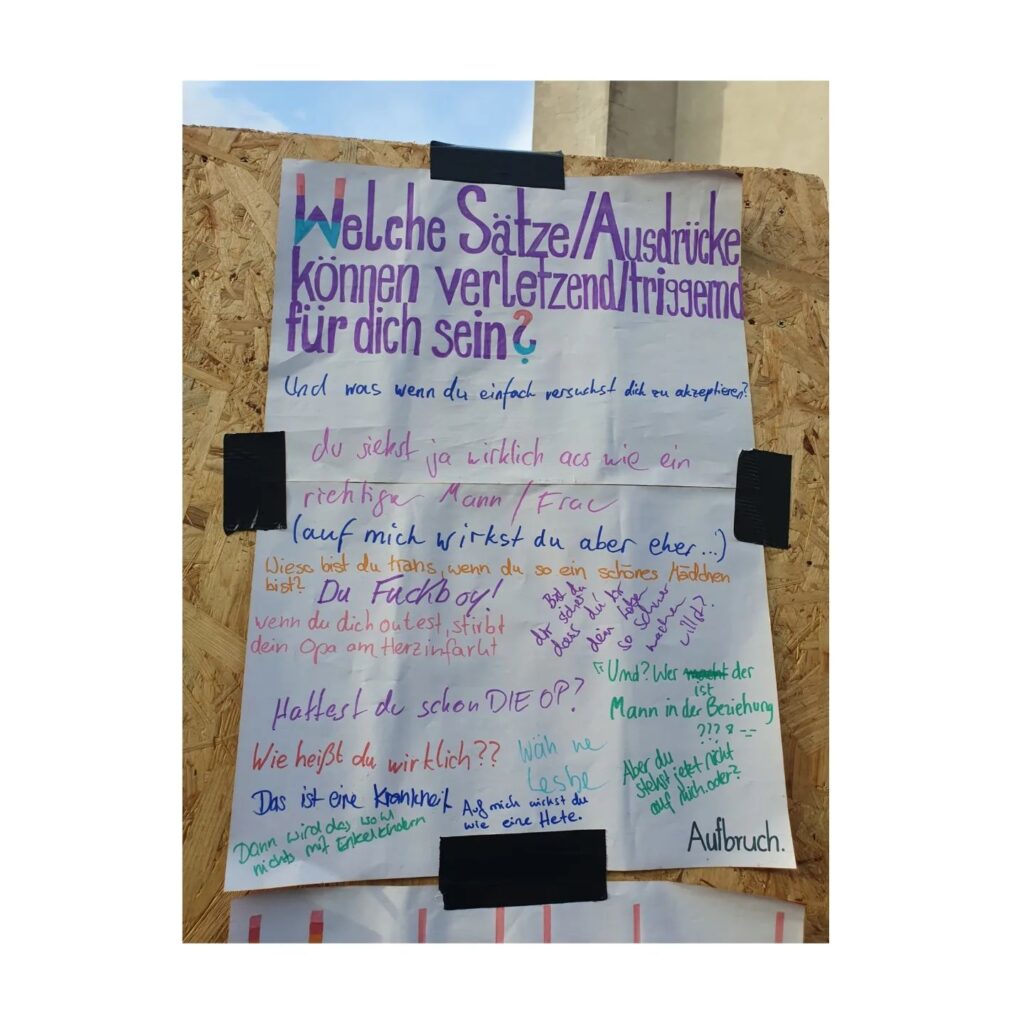 Welche Sätze/Ausdrücke
können verletzend/triggernd
für dich sein?
Und was wenn du einfach versuchst dich zu akzeptieren?
du siehst ja wirklich aus wie ein
richtiger Mann / Frau
(auf mich wirkst du aber eher...)
Wieso bist du trans, wenn du so ein schönes Mädchen
bist?
Du Fuckboy!
wenn du dich outest, stirbt
dein Opa am Herzinfarkt
Bist du
dir sicher
dass du dir
dein Leben
so schwer
machen
willst?
Hattest du schon DIE OP?
"Und? Wer macht der
ist
Mann in der Beziehung
???
Wie heißt du wirklich??
Wäh ne
Lesbe
Aber du
stehst jetzt nicht
auf mich, oder?
Das ist eine Krankheit
Auf mich wirkst du
wie eine Hete.
Dann wird das wohl
nichts mit Enkelkindern
Aufbruch.